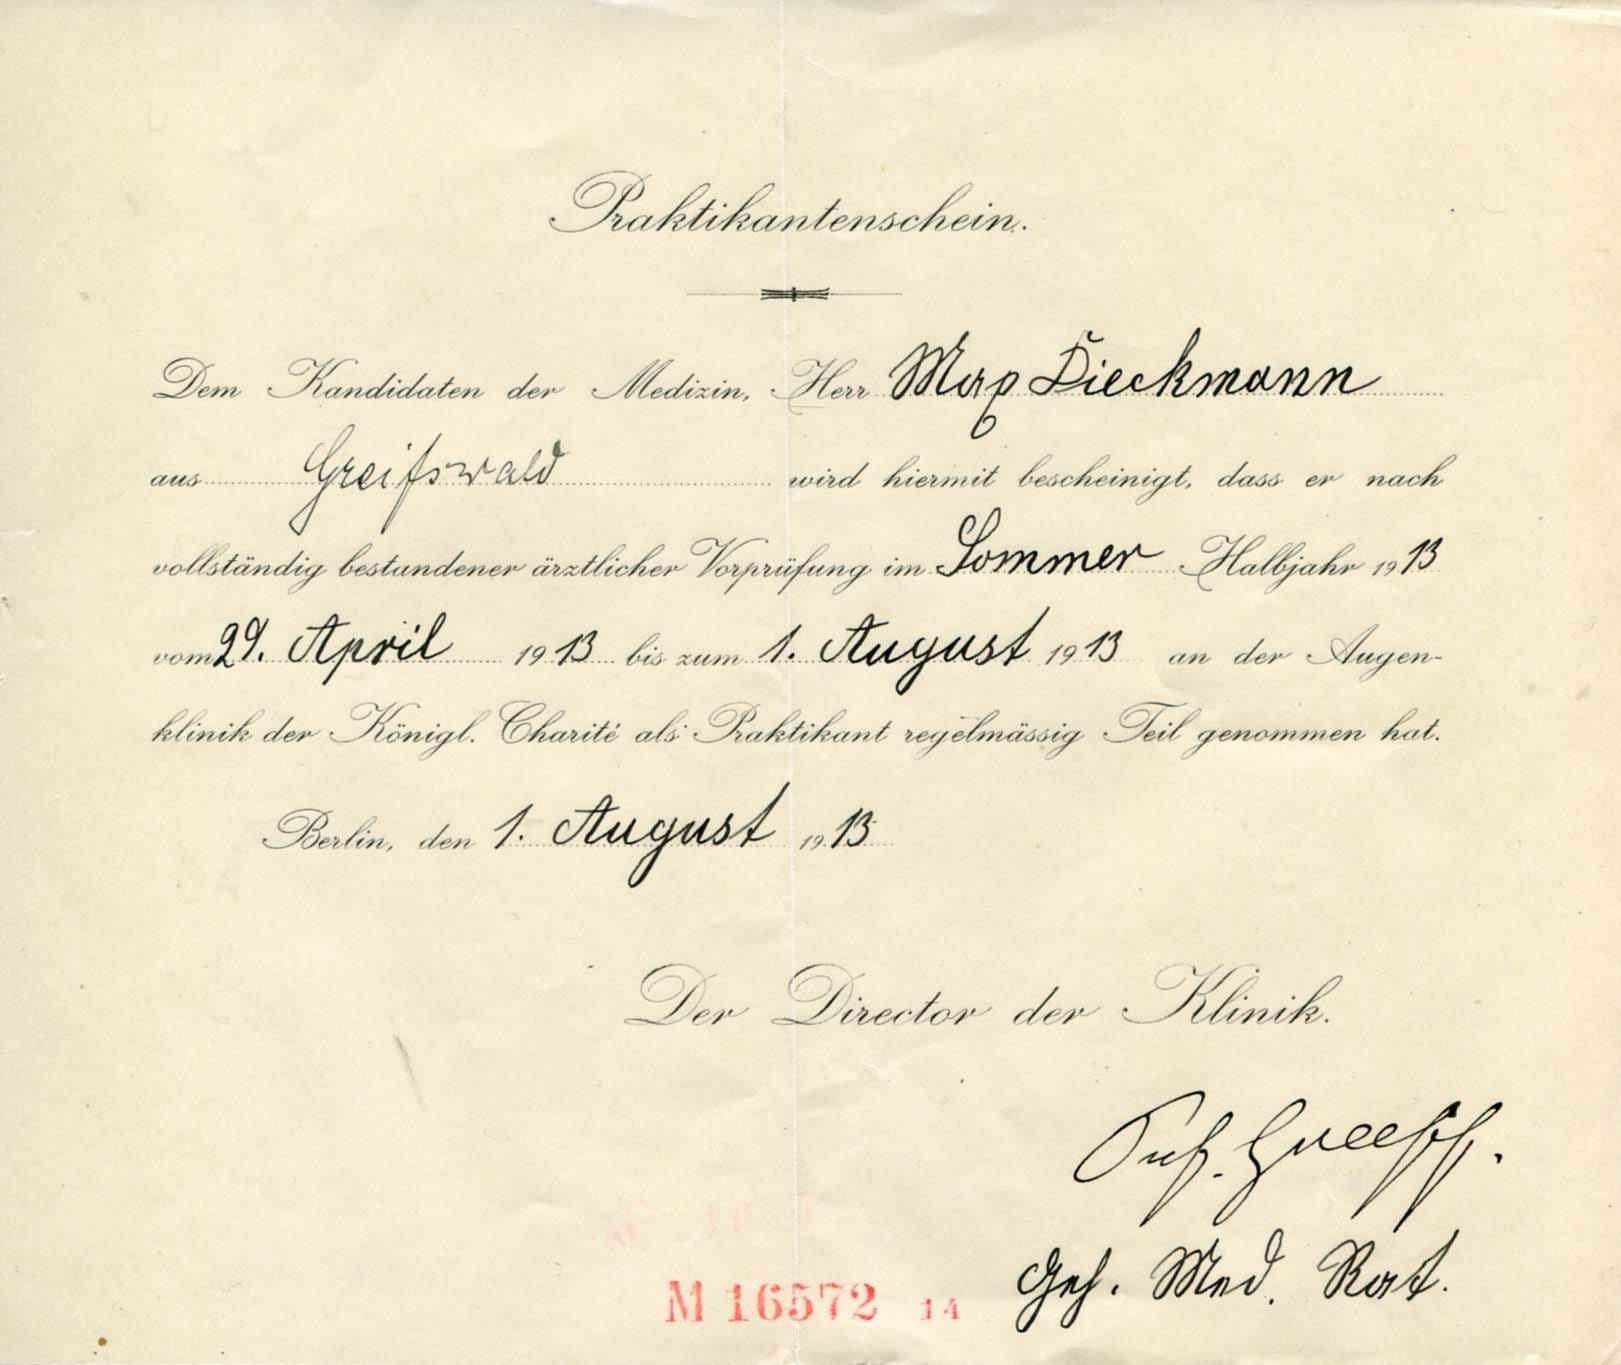 Praktikantenschein.
Dem Kandidaten der Medizin, Herr Max Dieckmann
aus Greifswald wird hiermit bescheinigt, dass er nach
vollständig bestandener ärztlicher Vorprüfung im Sommer Halbjahr 1913
vom 29. April 1913 bis zum 1. August 1913 an der Augen-
klinik der Königl. Charité als Praktikant regelmässig Teil genommen hat.
Berlin, den 1. August 1913
Der Director der Klinik.
Prof. Greeff.
Geh. Med. Rat.
M 16572 14